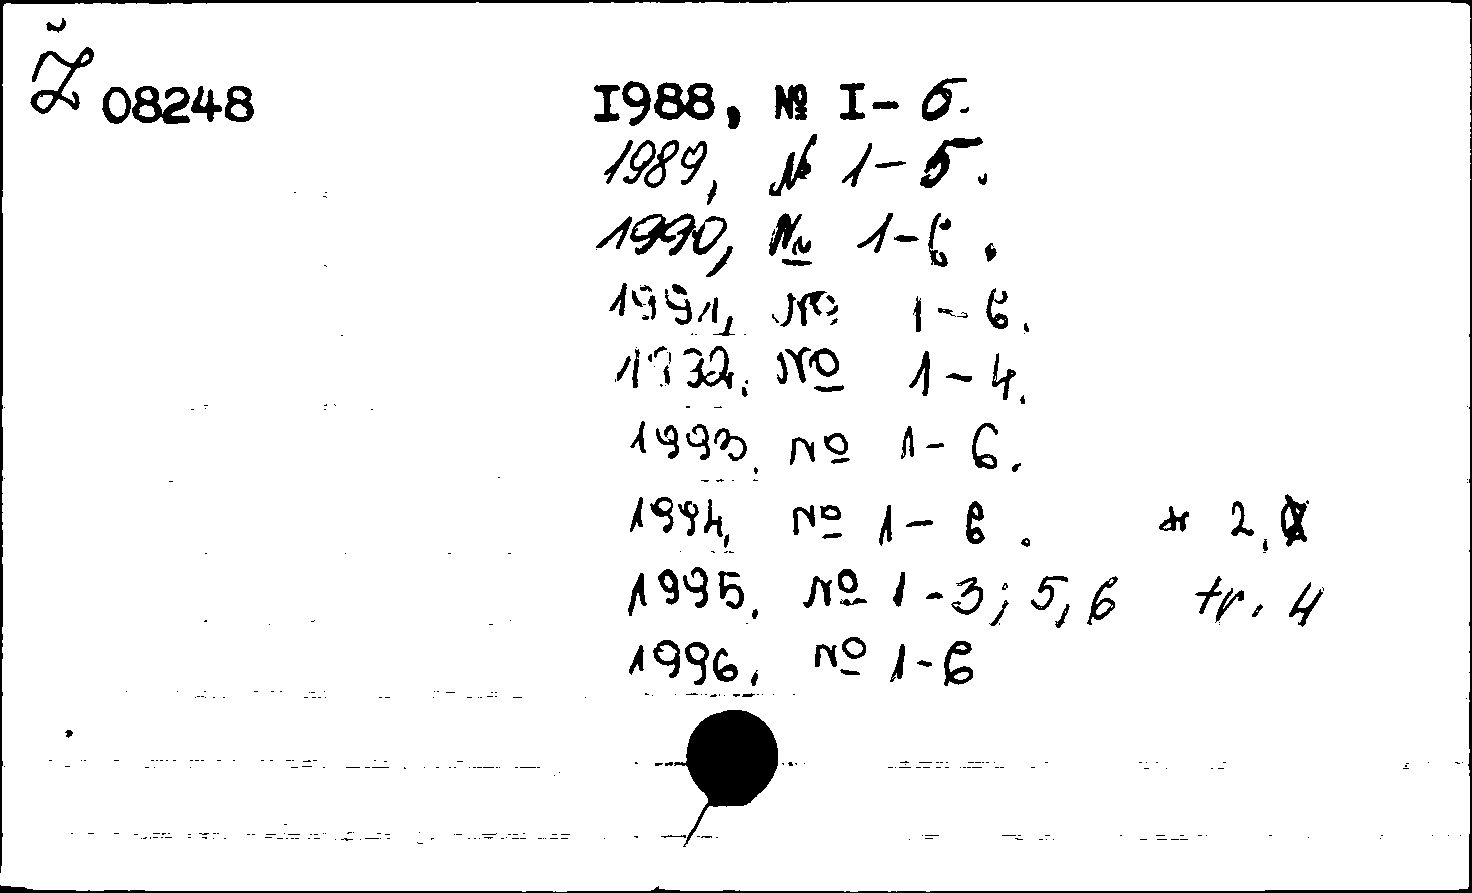 Ž 08248 I988, № I-6.
1989, № 1-5.
1990, № 1-6.
1991, № 1-6.
1992. № 1-4.
1993. № 1-6.
1994. № 1-6. 2,
1995. № 1-3; 5, 6 tr. 4
1996. № 1-6